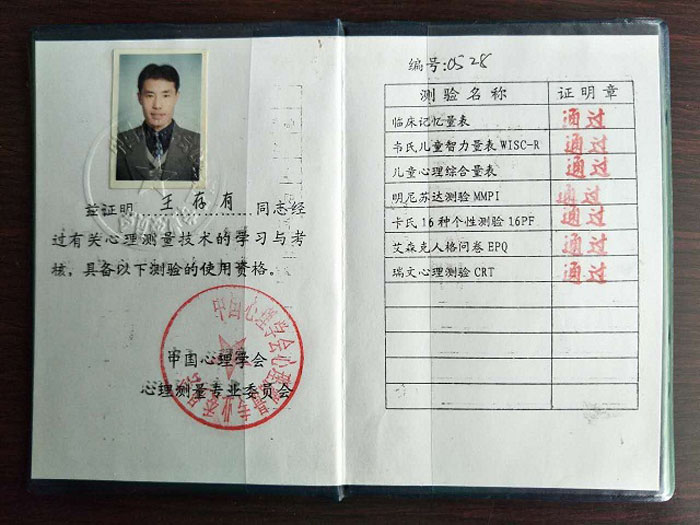 兹证明 王存有 同志经
过有关心理测量技术的学习与考
核，具备以下测验的使用资格。
中国心理学会
心理测量专业委员会
中国心理学会心理测量专业委员会
编号:0528
测验名称 证明章
临床记忆量表 通过
韦氏儿童智力量表WISC-R 通过
儿童心理综合量表 通过
明尼苏达测验MMPI 通过
卡氏16种个性测验16PF 通过
艾森克人格问卷EPQ 通过
瑞文心理测验CRT 通过